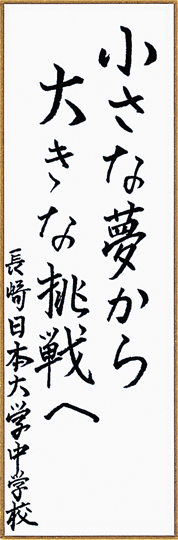 小さな夢から
大きな挑戦へ
長崎日本大学中学校